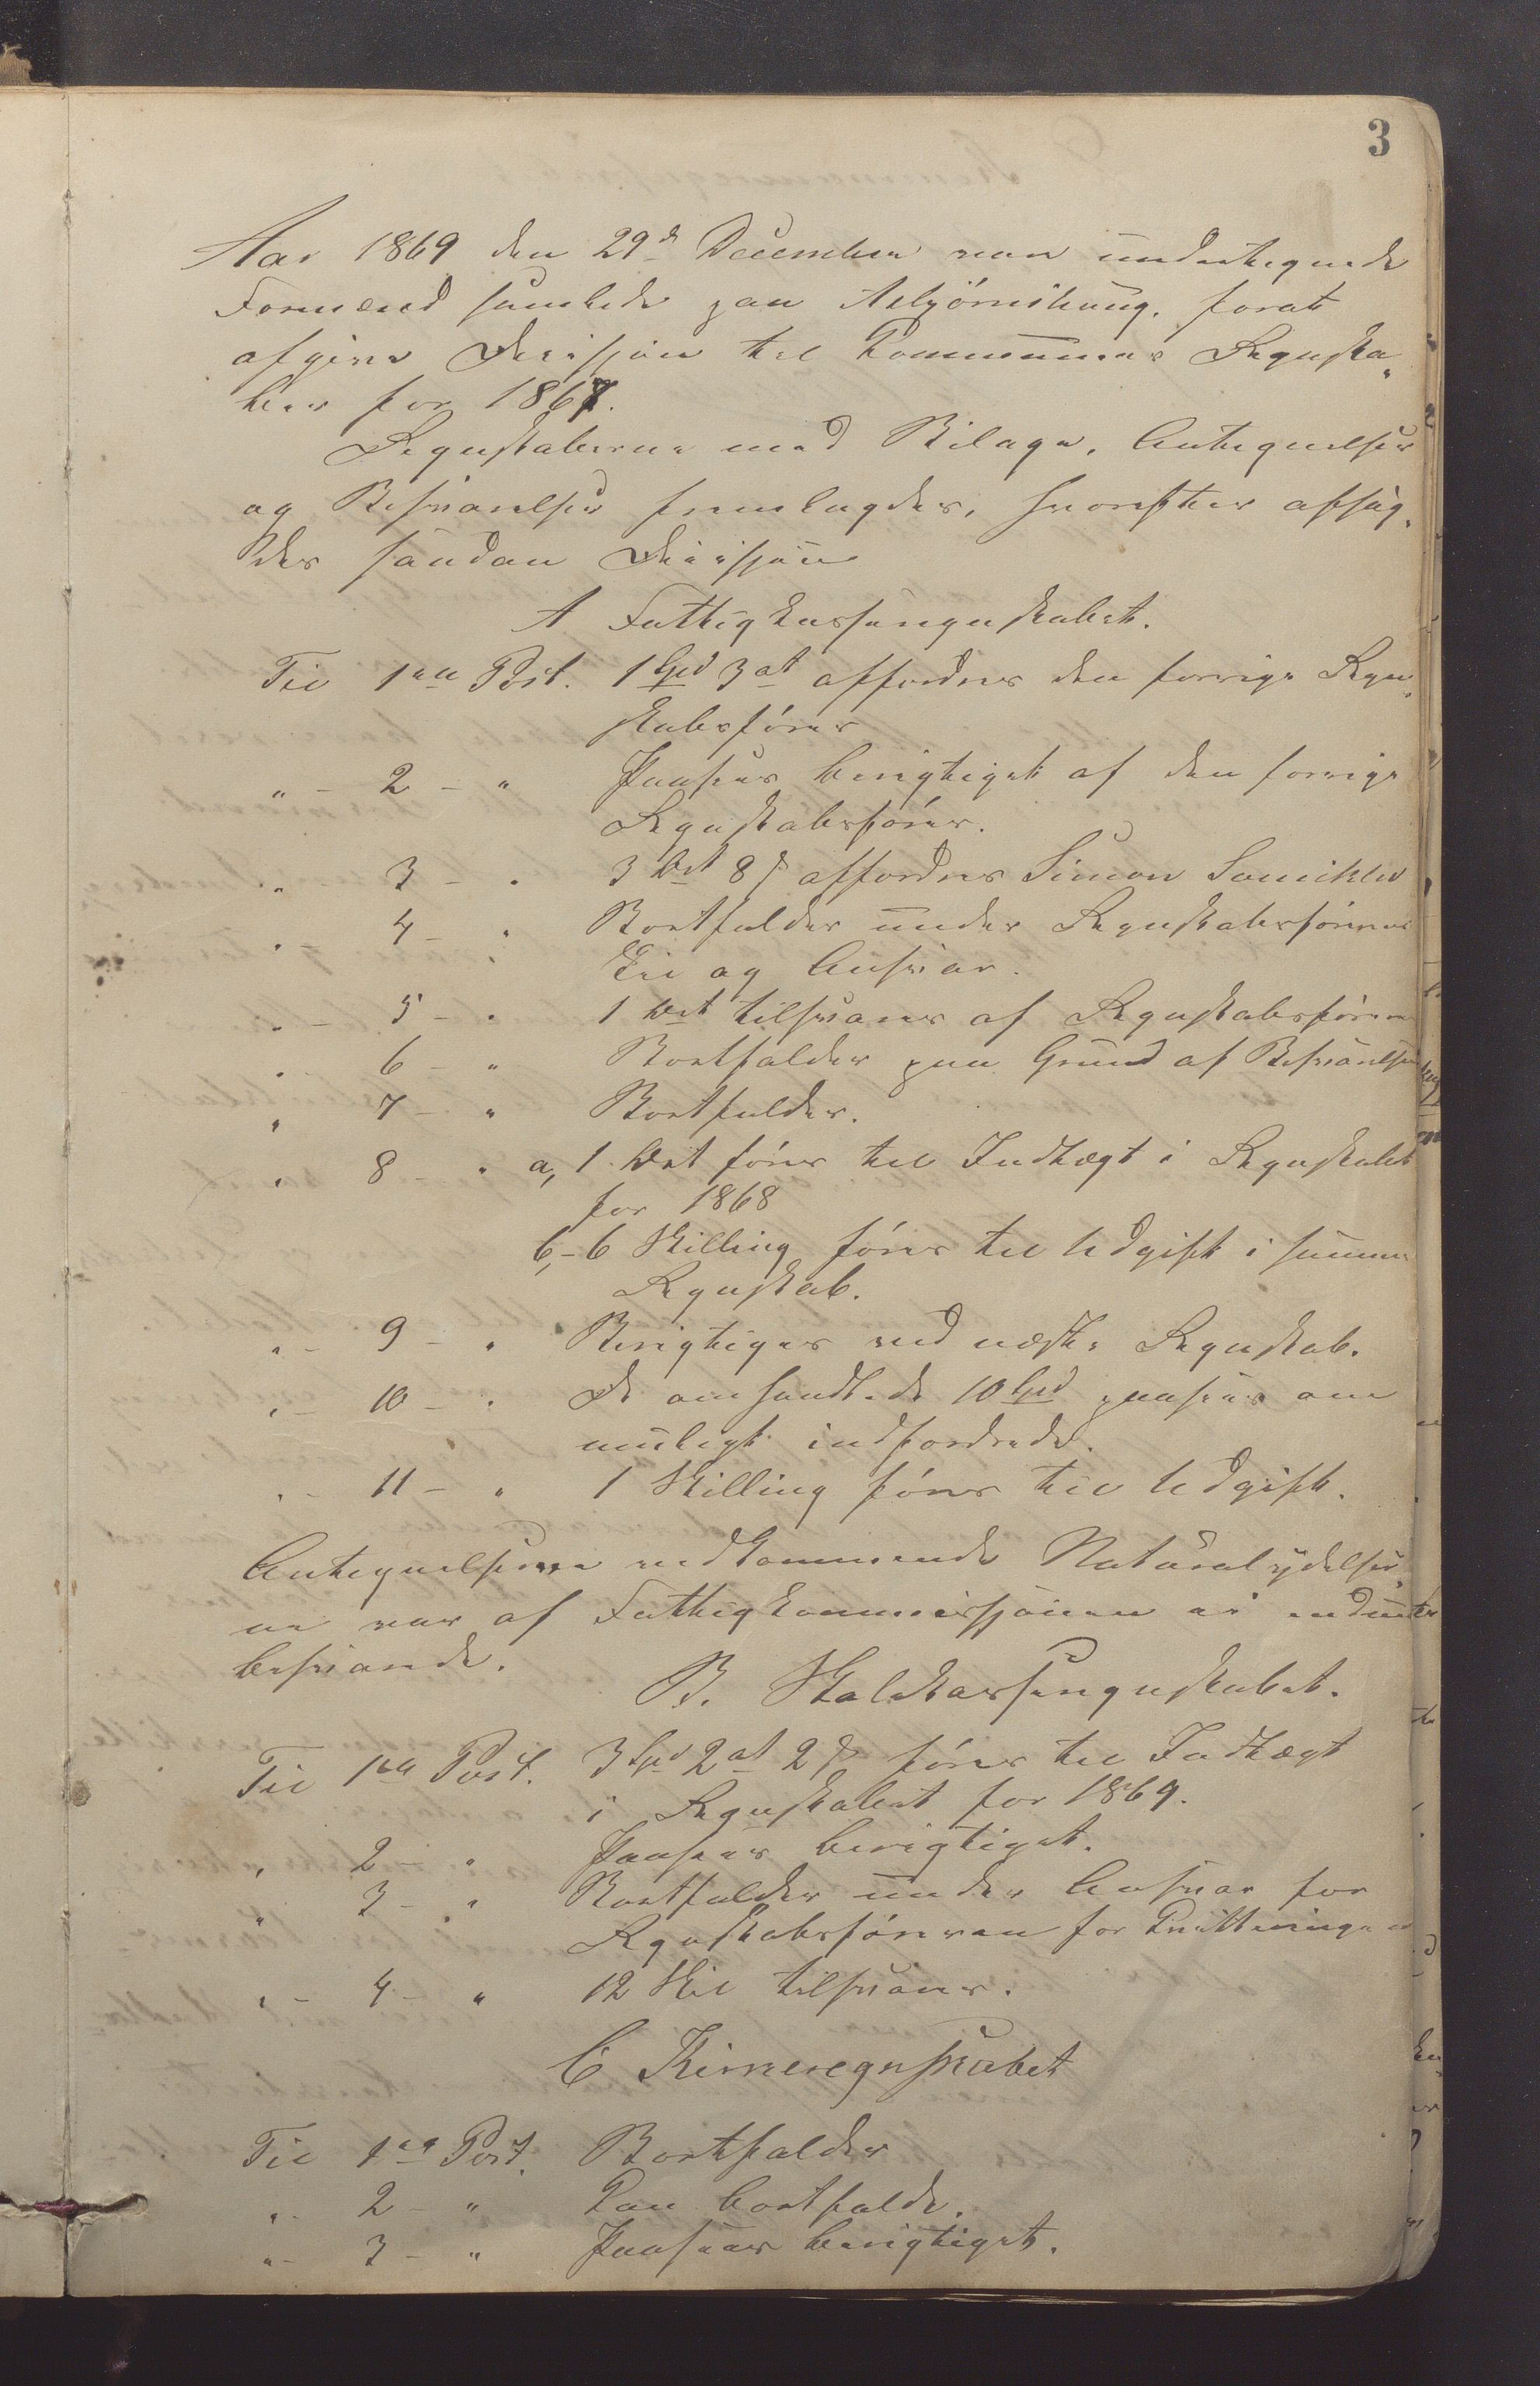 3
Aar 1869 den 29d December var undertegnede
Formænd samlede paa Asbjörnihaug, forat
afgive Decisjon til Kommunens Regnska„
ber for 1867.
Regnskaberne med Bilage, Antegnelser
og Besvarelser fremlagdes, hvorefter afsag„
des saadan Decisjon
A Fattigkasseregnskabet.
Til 1ste Post. 1 Spd 3 ort affordres den forrige Regn„
skabsförer
" – 2 – " Paasees berigtiget af den forrige
Regnskabsförer.
" – 3 – " 3 Ort 8 s affordres Simon
" – 4 – " Bortfalder under Regnskabsförerens
Til og Ansvar.
" – 5 – " 1 Ort tilsvares af Regnskabsföreren
" – 6 – " Bortfalder paa Grund af Besvarelsen
" 7 – " Bortfalder.
" 8 – " a, 1 Ort föres til Indtægt i Regnskabet
for 1868
b, – 6 Skilling föres til Udgift i samme
Regnskab.
" – 9 – " Berigtiges ved næste Regnskab.
" – 10 – " De omhandlede 10 Spd paasees om
muligt indfordrede.
" – 11 – " 1 Skilling föres til Udgift.
Antegnelserne vedkommende Naturalydelser„
ne var af Fattigkommissjonen ei endnu
besvarede.
B. Skolekasseregnskabet.
Til 1ste Post. 3 Spd 2 ort 2 s föres til Indtægt
i Regnskabet for 1869.
" 2 – " Paasees berigtiget.
" 3 – " Bortfalder under Ansvar for
Regnskabsföreren for Qvitteringen
" – 4 – " 12 Skil tilsvares.
C Kirkeregnskabet
Til 1ste Post. Bortfalder
" – 2 – " Kan bortfalde.
" – 3 – " Paasees berigtiget.